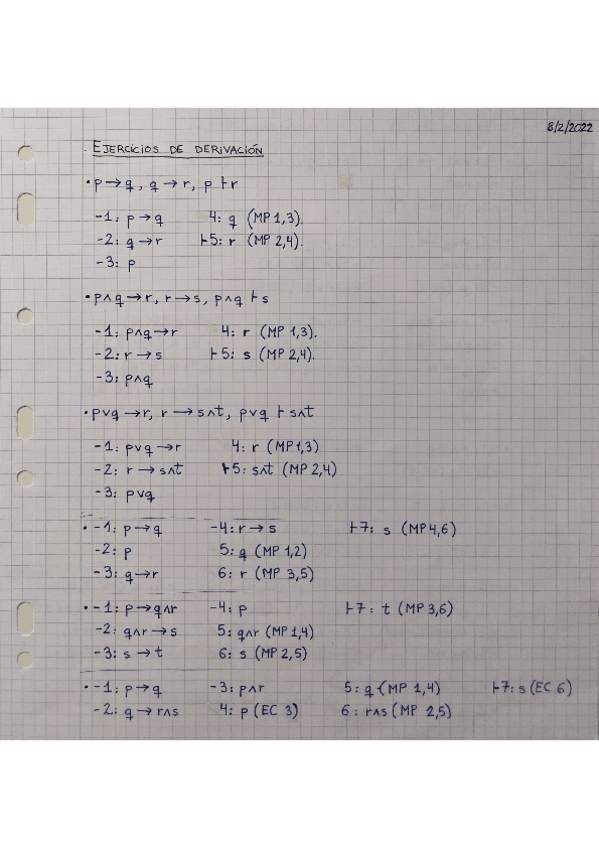 8/2/2022
EJERCICIOS DE DERIVACIÓN
• p → q, q → r, p ⊢ r
-1: p → q 4: q (MP 1,3).
-2: q → r ⊢5: r (MP 2,4).
-3: p
• p∧q → r, r → s, p∧q ⊢ s
-1: p∧q → r 4: r (MP 1,3).
-2: r → s ⊢5: s (MP 2,4).
-3: p∧q
• p∨q → r, r → s∧t, p∨q ⊢ s∧t
-1: p∨q → r 4: r (MP 1,3)
-2: r → s∧t ⊢5: s∧t (MP 2,4)
-3: p∨q
• -1: p → q -4: r → s ⊢7: s (MP 4,6)
-2: p 5: q (MP 1,2)
-3: q → r 6: r (MP 3,5)
• -1: p → q∧r -4: p ⊢7: t (MP 3,6)
-2: q∧r → s 5: q∧r (MP 1,4)
-3: s → t 6: s (MP 2,5)
• -1: p → q -3: p∧r 5: q (MP 1,4) ⊢7: s (EC 6)
-2: q → r∧s 4: p (EC 3) 6: r∧s (MP 2,5)